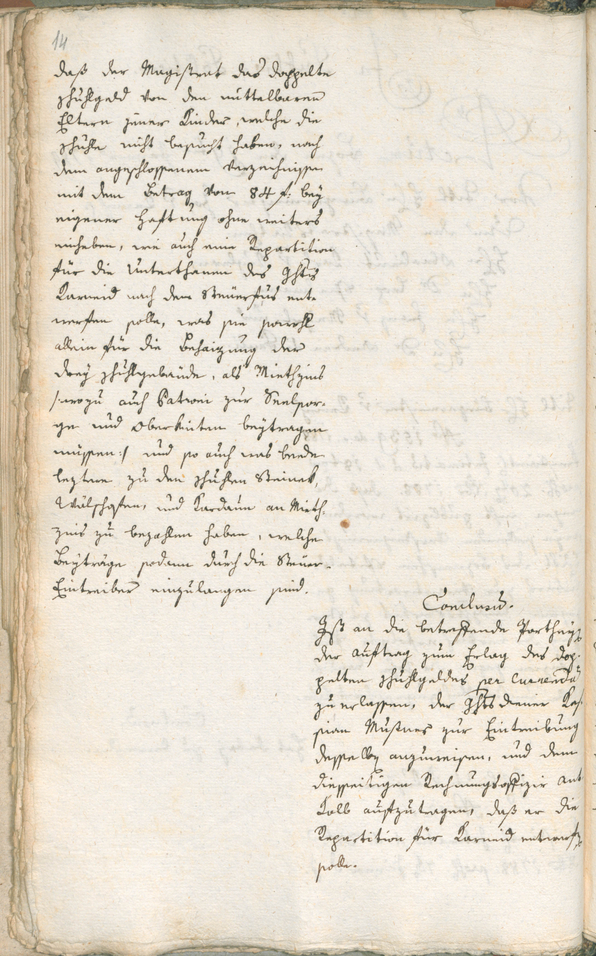 14
daß der Magistrat das doppelte
Schulgeld von den mittelbaren
Eltern jener Kinder, welche die
Schule nicht besucht haben, nach
dem angeschlossenem Verzeichnisse
mit dem Betrag von 84 f: bey
eigener Haftung ohne weiters
einheben, wie auch eine Repartition
für die Unterthanen des Ghts
Karneid nach dem Steuerfus ent-
werfen solle, was sie sowohl
allein für die Behaizung der
drey Schulgebäude, als Miethzins
/:wozu auch Patron zur Seelsor-
ge und Oberkeiten beytragen
müssen:/ und so auch was beede
leztere zu den Schulen Steinek,
Wälschofen, und Kardaun an Mieth-
zins zu bezahlen haben, welche
Beyträge sodann durch die Steuer-
Eintreiber einzulangen sind.
Conclusum.
Ist an die betreffende Partheyen
der Auftrag zum Erlag des dop-
pelten Schulgeldes per Currenda
zu erlassen, der Ghtsdiener Kas-
sian zur Eintreibung
desselben anzuweisen, und dem
diesseitigen Rechnungsoffizir Ant
Kolb aufzutragen, daß er die
Repartition für Karneid entwerfen
solle.